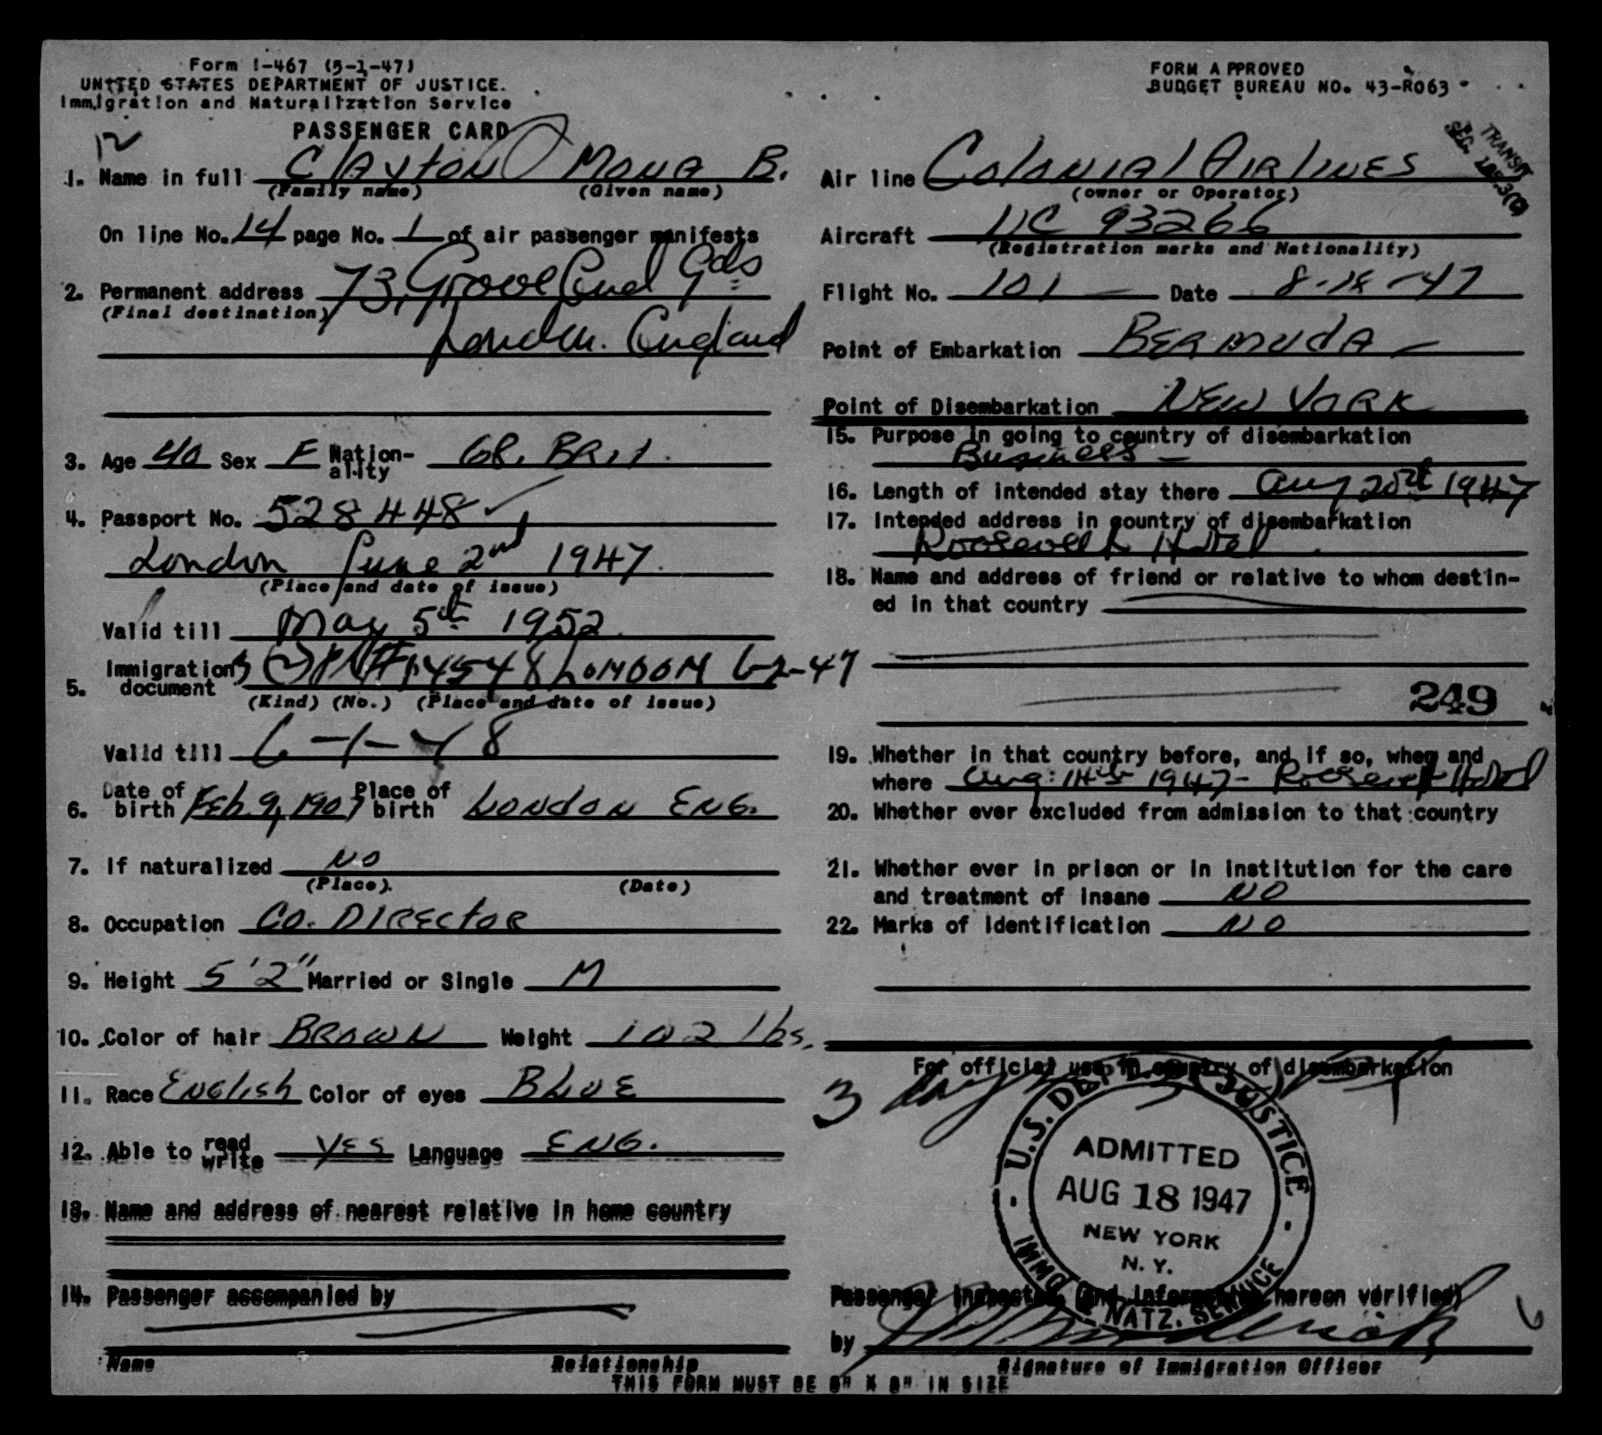 Form I-467 (5-1-47)
UNITED STATES DEPARTMENT OF JUSTICE.
Immigration and Naturalization Service
PASSENGER CARD
12
1. Name in full Clayton Mona B.
(Family name) (Given name)
On line No. 14 page No. 1 of air passenger manifests
2. Permanent address 73, Grove End Gds
(Final destination)
London. England
3. Age 40 Sex F Nation-ality GR. BRIT.
4. Passport No. 528448 ✓
London June 2nd 1947.
(Place and date of issue)
Valid till May 5th 1952
5. Immigration document 14548 LONDON 6-2-47
(Kind) (No.) (Place and date of issue)
Valid till 6-1-48
6. Date of birth Feb. 9, 1907 Place of birth LONDON ENG.
7. If naturalized NO
(Place). (Date)
8. Occupation CO. DIRECTOR
9. Height 5'2" Married or Single M
10. Color of hair BROWN Weight 102 lbs.
11. Race English Color of eyes BLUE
12. Able to read write YES Language ENG.
13. Name and address of nearest relative in home country
14. Passenger accompanied by
Name Relationship
THIS FORM MUST BE 8" X 8" IN SIZE
FORM APPROVED
BUDGET BUREAU NO. 43-R063
TRANSIT
SEC.
Air line Colonial AIRLINES
(owner or Operator)
Aircraft NC 93266
(Registration marks and Nationality)
Flight No. 101 Date 8-18-47
Point of Embarkation BERMUDA
Point of Disembarkation NEW YORK
15. Purpose in going to country of disembarkation
Business
16. Length of intended stay there Aug 20th 1947
17. Intended address in country of disembarkation
Roosevelt Hotel
18. Name and address of friend or relative to whom destin-
ed in that country
249
19. Whether in that country before, and if so, when and
where Aug: 14th 1947 - Roosevelt Hotel
20. Whether ever excluded from admission to that country
21. Whether ever in prison or in institution for the care
and treatment of insane NO
22. Marks of identification NO
For official use in country of disembarkation
3 days
U.S. DEPT. OF JUSTICE
ADMITTED
AUG 18 1947
NEW YORK
N. Y.
IMMIG. AND NATZ. SERVICE
Passenger inspected (and information hereon verified)
by
Signature of Immigration Officer